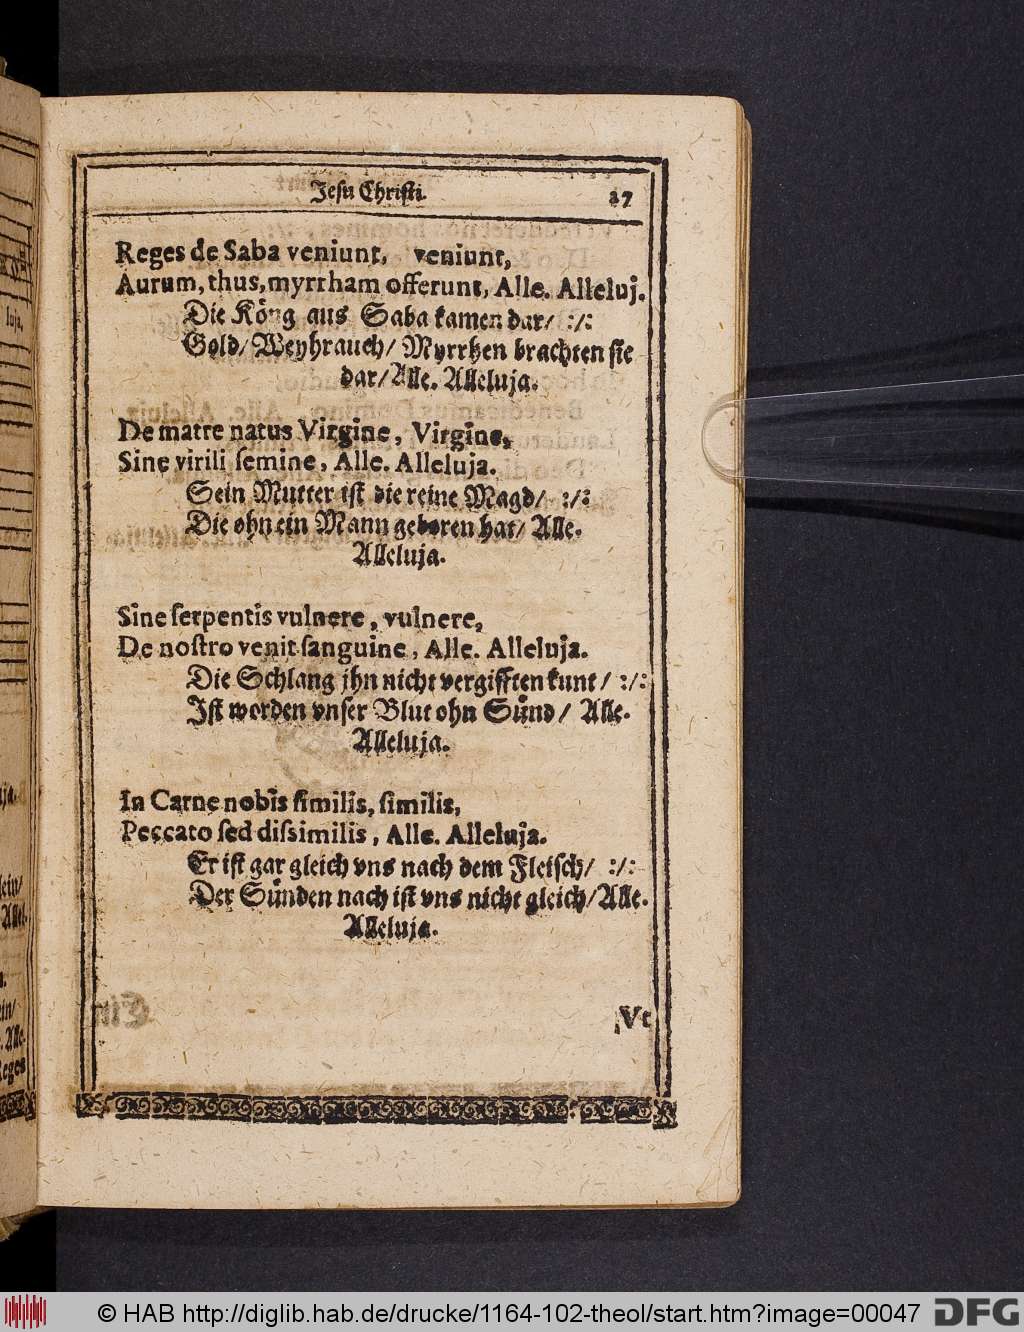 Jesu Christi.
27
Reges de Saba veniunt, veniunt,
Aurum, thus, myrrham offerunt, Alle. Alleluj.
Die Köng aus Saba kamen dar/ :/:
Gold/ Weyhrauch/ Myrrhen brachten sie
dar/ Alle. Alleluja.
De matre natus Virgine, Virgine,
Sine virili semine, Alle. Alleluja.
Sein Mutter ist die reine Magd/ :/:
Die ohn ein Mann geboren hat/ Alle.
Alleluja.
Sine serpentis vulnere, vulnere,
De nostro venit sanguine, Alle. Alleluja.
Die Schlang jhn nicht vergifften kunt / :/:
Ist worden vnser Blut ohn Sünd / Alle.
Alleluja.
In Carne nobis similis, similis,
Peccato sed dissimilis, Alle. Alleluja.
Er ist gar gleich vns nach dem Fleisch/ :/:
Der Sünden nach ist vns nicht gleich/ Alle.
Alleluja.
Vt
luja,
lein/
Allel.
ein/
Alle.
Reges
© HAB http://diglib.hab.de/drucke/1164-102-theol/start.htm?image=00047
DFG